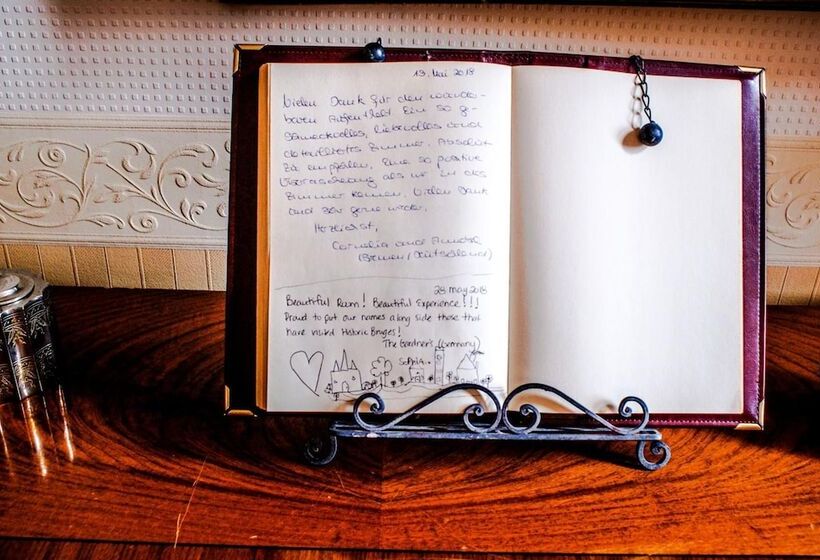 13. Mai 2018
Vielen Dank für den wunder-
baren Aufenthalt. Ein so ge-
schmackvolles, liebevolles und
detailliertes Zimmer. Absolut
zu empfehlen. Eine so positive
Überraschung als wir in das
Zimmer kamen. Vielen Dank
und sehr gerne wieder.
Herzlichst,
Cornelia und
(Bremen / Deutschland)
28 May 2018
Beautiful Room! Beautiful Experience!!!
Proud to put our names along side those that
have visited Historic Bruges!
The Gardner's (Germany)